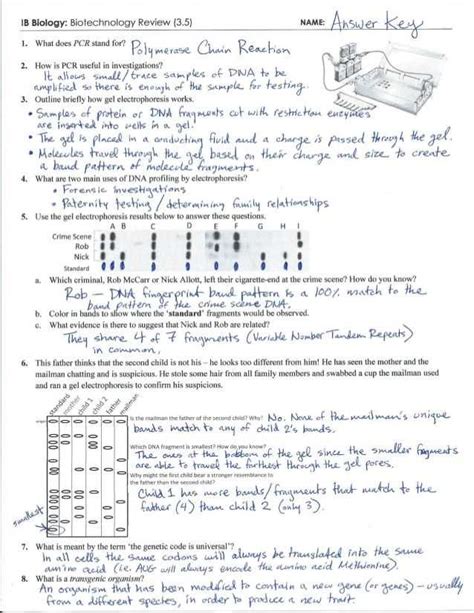 IB Biology: Biotechnology Review (3.5)
NAME: Answer Key
1. What does PCR stand for? Polymerase Chain Reaction
2. How is PCR useful in investigations?
It allows small/trace samples of DNA to be
amplified so there is enough of the sample for testing.
3. Outline briefly how gel electrophoresis works.
• Samples of protein or DNA fragments cut with restriction enzymes
are inserted into wells in a gel.
• The gel is placed in a conducting fluid and a charge is passed through the gel.
• Molecules travel through the gel based on their charge and size to create
a band pattern of molecule fragments.
4. What are two main uses of DNA profiling by electrophoresis?
• Forensic Investigations
• Paternity testing / determining family relationships
5. Use the gel electrophoresis results below to answer these questions.
A B C D E F G H I
Crime Scene
Rob
Nick
Standard
a. Which criminal, Rob McCarr or Nick Allott, left their cigarette-end at the crime scene? How do you know?
Rob – DNA fingerprint band pattern is a 100% match to the
band pattern of the crime scene DNA.
b. Color in bands to show where the 'standard' fragments would be observed.
c. What evidence is there to suggest that Nick and Rob are related?
They share 4 of 7 fragments (Variable Number Tandem Repeats)
in common.
6. This father thinks that the second child is not his – he looks too different from him! He has seen the mother and the
mailman chatting and is suspicious. He stole some hair from all family members and swabbed a cup the mailman used
and ran a gel electrophoresis to confirm his suspicions.
standard
mother
child 1
child 2
father
mailman
Is the mailman the father of the second child? Why? No. None of the mailman's unique
bands match to any of child 2's bands.
Which DNA fragment is smallest? How do you know?
The ones at the bottom of the gel since the smaller fragments
are able to travel the farthest through the gel pores.
Why might the first child bear a stronger resemblance to
the father than the second child?
Child 1 has more bands/fragments that match to the
father (4) than child 2 (only 3).
smallest
7. What is meant by the term 'the genetic code is universal'?
In all cells the same codons will always be translated into the same
amino acid (i.e. AUG will always encode the amino acid Methionine).
8. What is a transgenic organism?
An organism that has been modified to contain a new gene (or genes) – usually
from a different species, in order to produce a new trait.